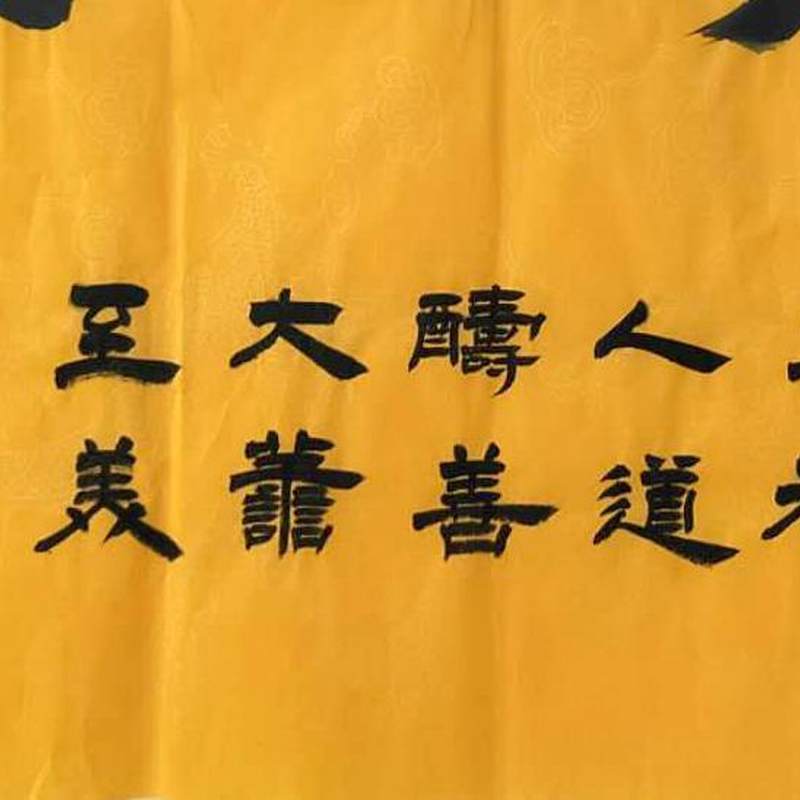 人道
醻善
大譱
至美